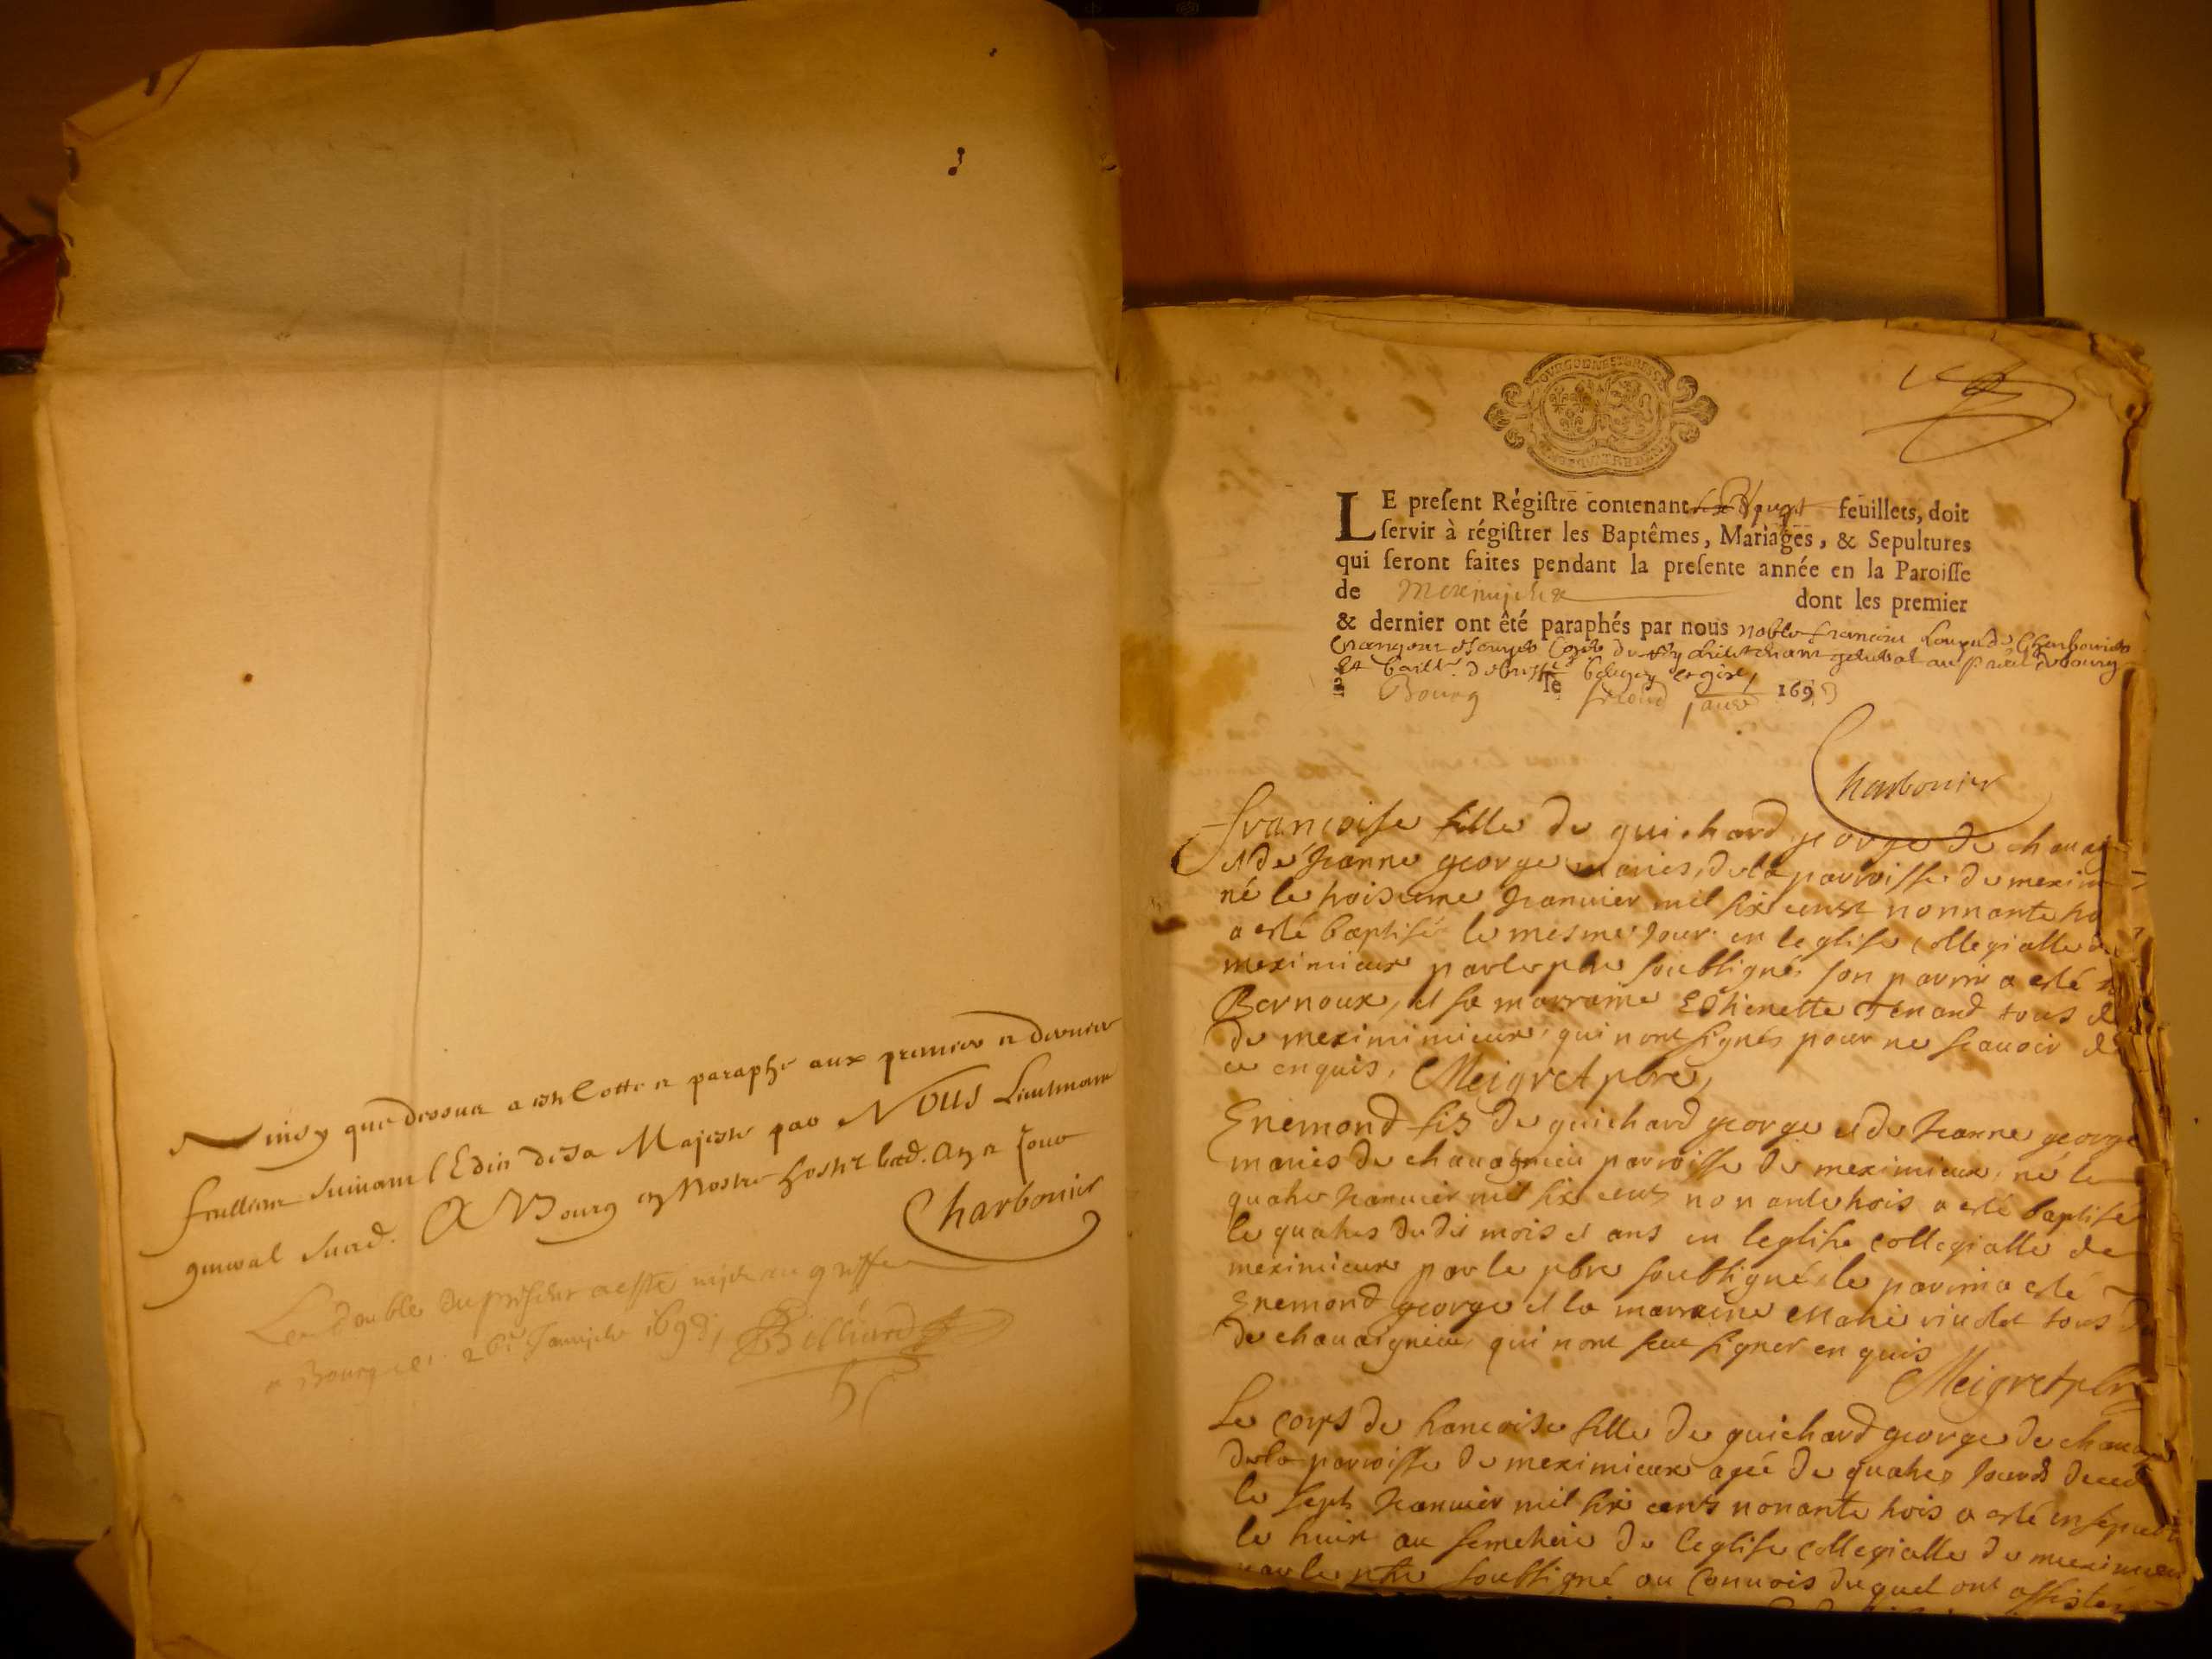 que dessus a esté Cotté et paraphé aux premier et dernier
feuilletz suivant l'Edit de Sa Majesté par Nous Lieutenant
general susd. A Bourg en Nostre hostel
Charbonier
Le double du present a esté mis au greffe
a Bourg ce 26e Janvier 1693, Billiard
LE present Régistre contenant feuillets, doit
servir à régistrer les Baptêmes, Mariages, & Sepultures
qui seront faites pendant la presente année en la Paroisse
de Meximieux dont les premier
& dernier ont êté paraphés par nous noble francois
Lieutenant general au
Et baill. de bresse bugey et gex,
Bourg le second janv 1693
Charbonier
francoise fille de guichard george de chauag
et de Jeanne george maries, de la parroisse de mexim
né le troisieme Januier mil six cens nonnante tro
a esté baptisée le mesme Jour en leglise collegialle de
meximieux par le pbre soubsigné, son parrin a esté
Bernoux, et sa marraine Esthienette tenand tous de
de meximimieux, qui nont signés pour ne scauoir de
ce enquis, Meigret pbre,
Enemond fis de guichard george et de Jeanne george
maries de chauagnieu parroisse de meximieux, né le
quatre Januier mil six cens nonante trois a esté baptisé
le quatre dudit mois et ans en leglise collegialle de
meximieux par le pbre soubsigné, le parrin a esté
Enemond george et la marraine Marie viollet tous de
de chauaignieu qui nont sceu signer enquis
Meigret pbre
Le corps de francoise fille de guichard george de chauag
de la parroisse de meximieux agée de quatre Jours deced
le sept Januier mil six cens nonante trois a esté ensepueli
le huit au semetiere de leglise collegialle de meximieu
par le pbre soubsigné au conuois duquel ont assisté